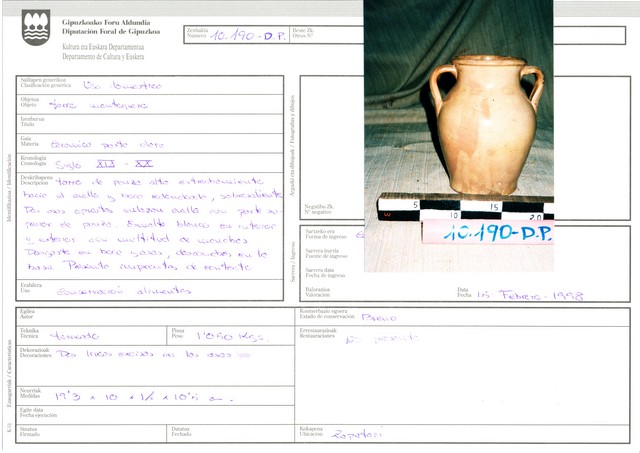 Gipuzkoako Foru Aldundia
Diputación Foral de Gipuzkoa
Kultura eta Euskara Departamentua
Departamento de Cultura y Euskera
Zenbakia
Número 10.190-D.P.
Beste Zk.
Otros Nº
Sailapen generikoa
Clasificación genérica Uso doméstico
Objetua
Objeto Jarra mantequera
Izenburua
Título
Gaia
Materia Cerámica pasta clara
Kronologia
Cronología Siglo XIX - XX
Deskribapena
Descripción Jarra de panza alta estrechamiento
hacia el cuello y boca redondeada, sobresaliente
Dos asas opuestas cuello con parte su-
perior de panza. Esmalte blanco en interior
y exterior con multitud de manchas
Desgaste en boca y asas, desconches en la
base. Presenta impurezas de
Erabilera
Uso Conservación alimentos
Identifikazioa / Identificación
Argazki eta dibujoak / Fotografías y dibujos
Negatibo Zk.
Nº negativo
5
10
15
20
10.190-D.P.
Sarrera / Ingreso
Sartzeko era
Forma de ingreso
Sarrera iturria
Fuente de ingreso
Sarrera data
Fecha de ingreso
Balorazioa
Valoración
Data
Fecha 15 Febrero - 1998
Ezaugarriak / Características
Egilea
Autor
Teknika
Técnica torneado
Pisua
Peso 1'050 Kgs.
Dekorazioak
Decoraciones Dos líneas incisas en las asas
Neurriak
Medidas
Egite data
Fecha ejecución
Sinatua
Firmado
Datatua
Fechado
Kontserbazio egoera
Estado de conservación Bueno
Errestaurazioak
Restauraciones No presenta
Kokapena
Ubicación Zapatari